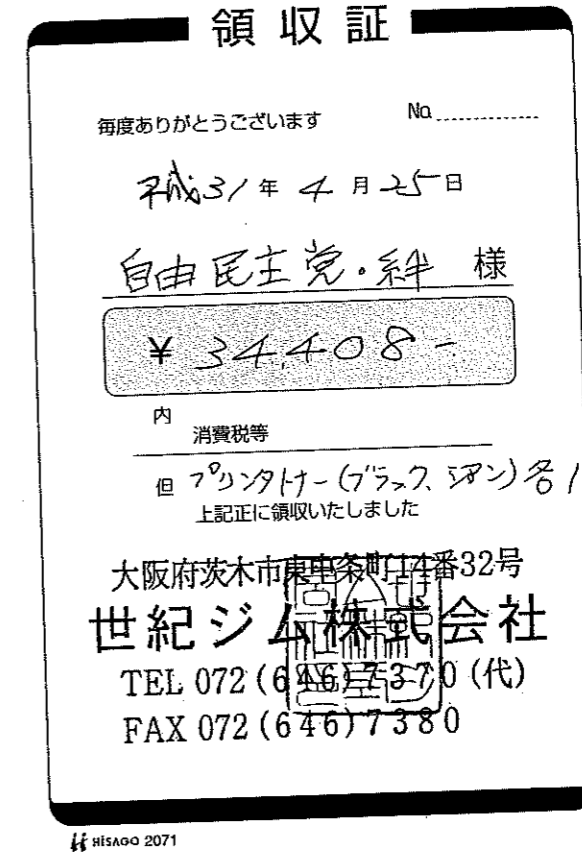 領収証
毎度ありがとうございます No.
平成31年4月25日
自由民主党・絆 様
¥34,408-
内
消費税等
但 プリンタトナー(ブラック、シアン)各1
上記正に領収いたしました
大阪府茨木市東中条町14番32号
世紀ジム株式会社
TEL 072(646)7370(代)
FAX 072(646)7380
HISAGO 2071